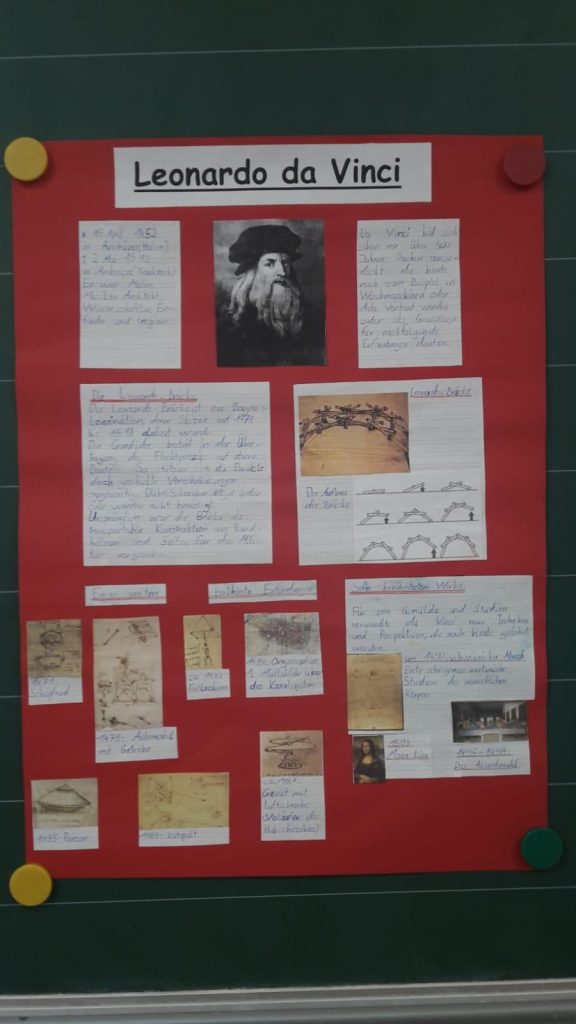 Leonardo da Vinci
* 15 April 1452
in Anchiano
† 2. Mai 1519
in Amboise (Frankreich)
Er war Maler,
Musiker, Architekt,
Wissenschaftler, Er-
finder und Ingenieur.
Da Vinci hat sich
schon vor über 500
Jahren Sachen ausge-
dacht, die heute
noch zum Beispiel in
Waschmaschinen oder
Auto verbaut werden
oder als Grundlage
für nachfolgende
Erfindungen dienten.
Die Leonardo Brücke
Die Leonardo Brücke ist eine Bogen-
konstruktion, deren Skizzen auf
bis datiert wurde.
Die Grundidee besteht in der Über-
tragung des Flechtprinzip auf starre
Bauteile. So stützen sich die Bauteile
durch geschickte Verschränkungen
gegenseitig. Dübel, Schrauben, Nägel oder
Seile werden nicht benötigt.
Ursprünglich war die Brücke als
transportable Konstruktion aus Rund-
hölzern und Seilen für das Mili-
tär vorgesehen.
Leonardo-Brücke
Der Aufbau
der Brücke
Einige weitere
berühmte Erfindungen
Seine berühmtesten Werke
Für sein Gemälde und Studien
verwendete da Vinci neue Techniken
und Perspektiven, die noch heute gelehrt
werden.
um 1490: vitruvianischer Mensch
Erste sehr genaue anatomische
Studien des menschlichen
Körpers
Schaufelrad
1478: Automobil
mit Getriebe
ca. 1483
Fallschirm
Organisation
das Kanalsystem
1503:
Mona Lisa
1495-1498:
Das Abendmahl
1485: Panzer
1485: Katapult
Gerät mit
Luftschraube
(Vorläufer des
Hubschraubers)